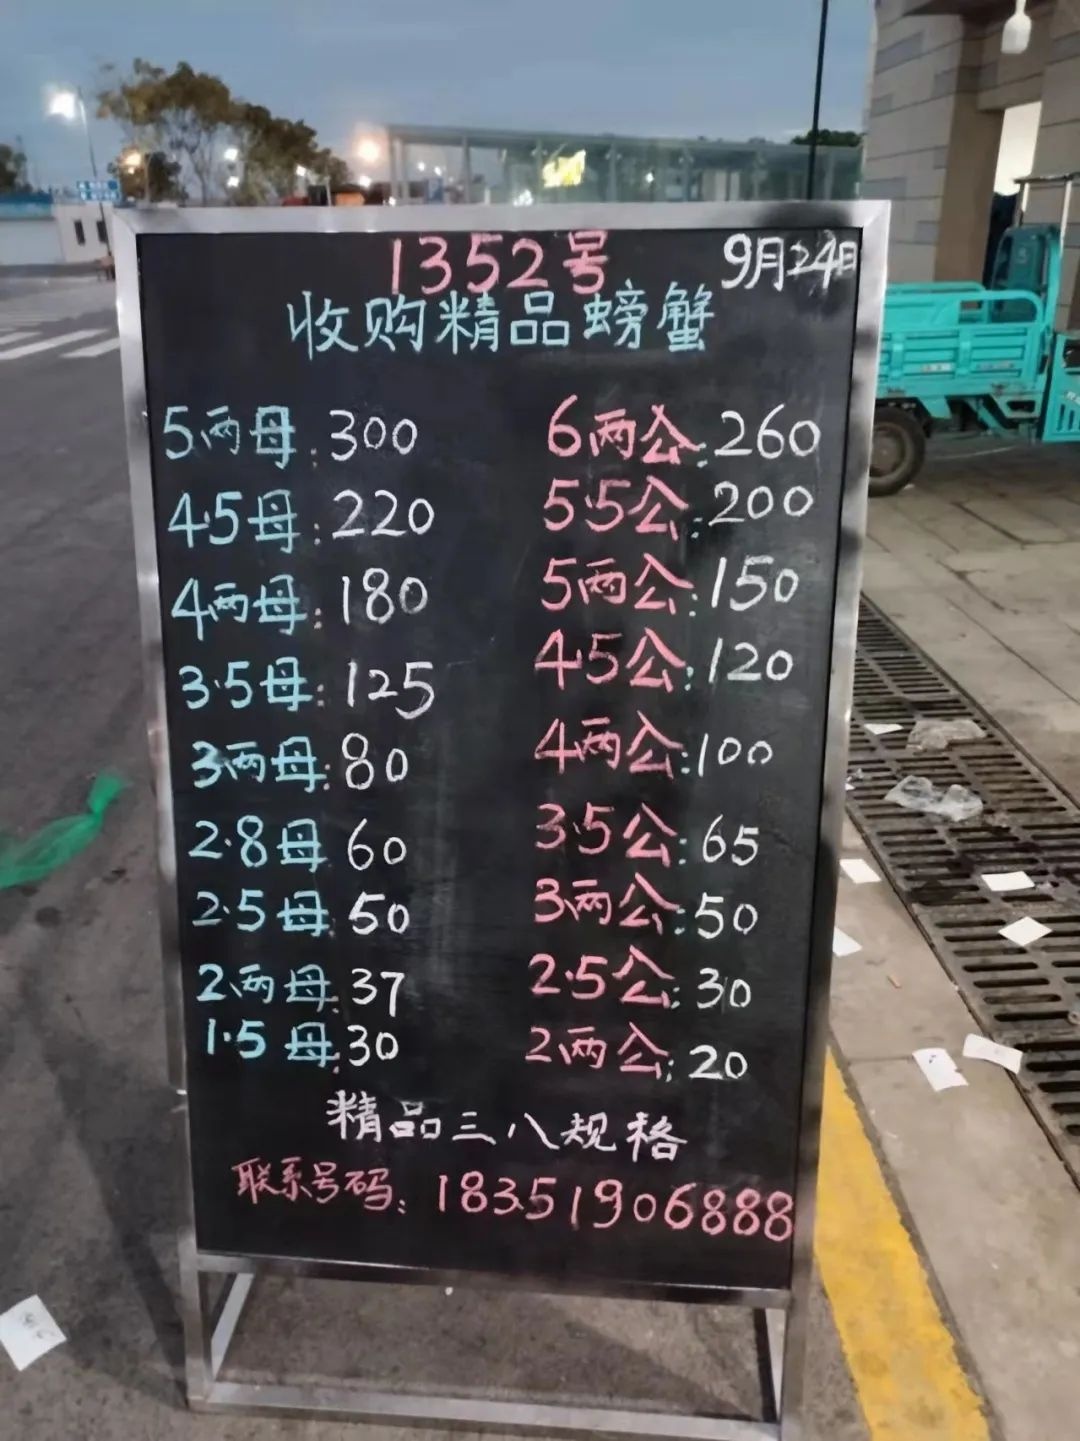 1352号 9月24日
收购精品螃蟹
5两母:300 6两公:260
4.5母:220 5.5公:200
4两母:180 5两公:150
3.5母:125 4.5公:120
3两母:80 4两公:100
2.8母:60 3.5公:65
2.5母:50 3两公:50
2两母:37 2.5公:30
1.5母:30 2两公:20
精品三八规格
联系号码:18351906888